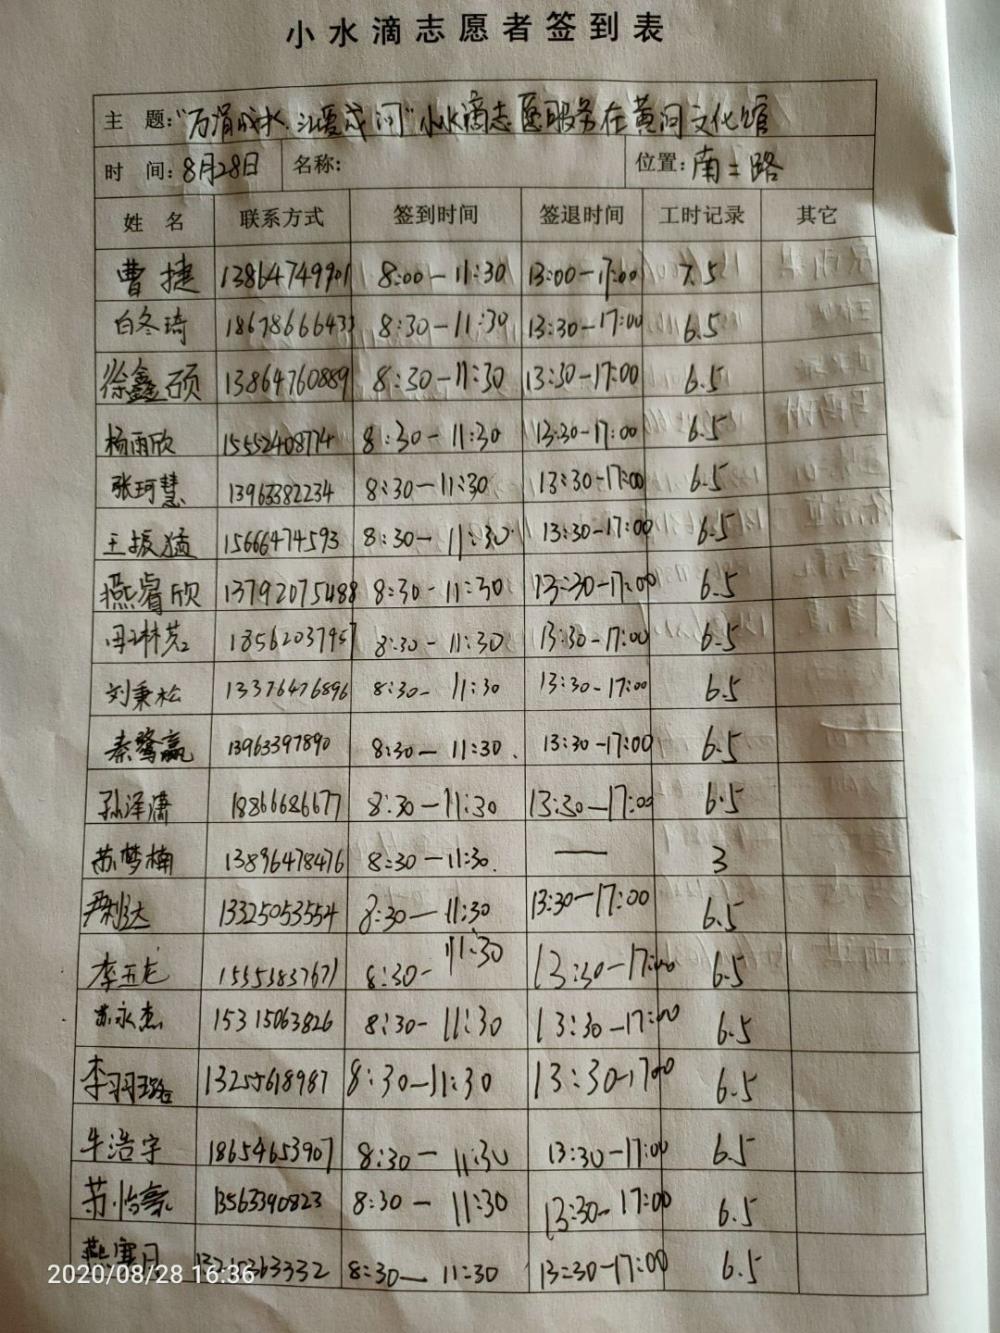 小水滴志愿者签到表
主 题:"万涓成水.汇爱成河"小水滴志愿服务在黄河文化馆
时 间:8月28日 名称: 位置:南二路
姓 名 联系方式 签到时间 签退时间 工时记录 其它
曹捷 13864749901 8:00-11:30 13:00-17:00 7.5
白冬琦 18678666433 8:30-11:30 13:30-17:00 6.5
徐鑫硕 13864760889 8:30-11:30 13:30-17:00 6.5
杨雨欣 15552408774 8:30-11:30 13:30-17:00 6.5
张珂慧 13963382234 8:30-11:30 13:30-17:00 6.5
王振猛 15666474593 8:30-11:30 13:30-17:00 6.5
燕睿欣 13792075488 8:30-11:30 13:30-17:00 6.5
18562037957 8:30-11:30 13:30-17:00 6.5
刘秉松 13376476896 8:30-11:30 13:30-17:00 6.5
秦鹭赢 13963397890 8:30-11:30. 13:30-17:00 6.5
孙泽潇 18866686677 8:30-11:30 13:30-17:00 6.5
苏梦楠 13896478476 8:30-11:30. — 3
13325053554 8:30-11:30 13:30-17:00 6.5
李五龙 15551837671 8:30-11:30 13:30-17:00 6.5
苏永杰 15315063826 8:30-11:30 13:30-17:00 6.5
李羽璐 13255618987 8:30-11:30 13:30-17:00 6.5
牛浩宇 18654653907 8:30-11:30 13:30-17:00 6.5
苏怡豪 13563390823 8:30-11:30 13:30-17:00 6.5
燕寒月 8:30-11:30 13:30-17:00 6.5
2020/08/28 16:36